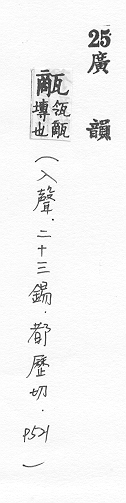 25廣韻
甋瓴甋塼也(入聲.二十三錫.都歷切.P521)